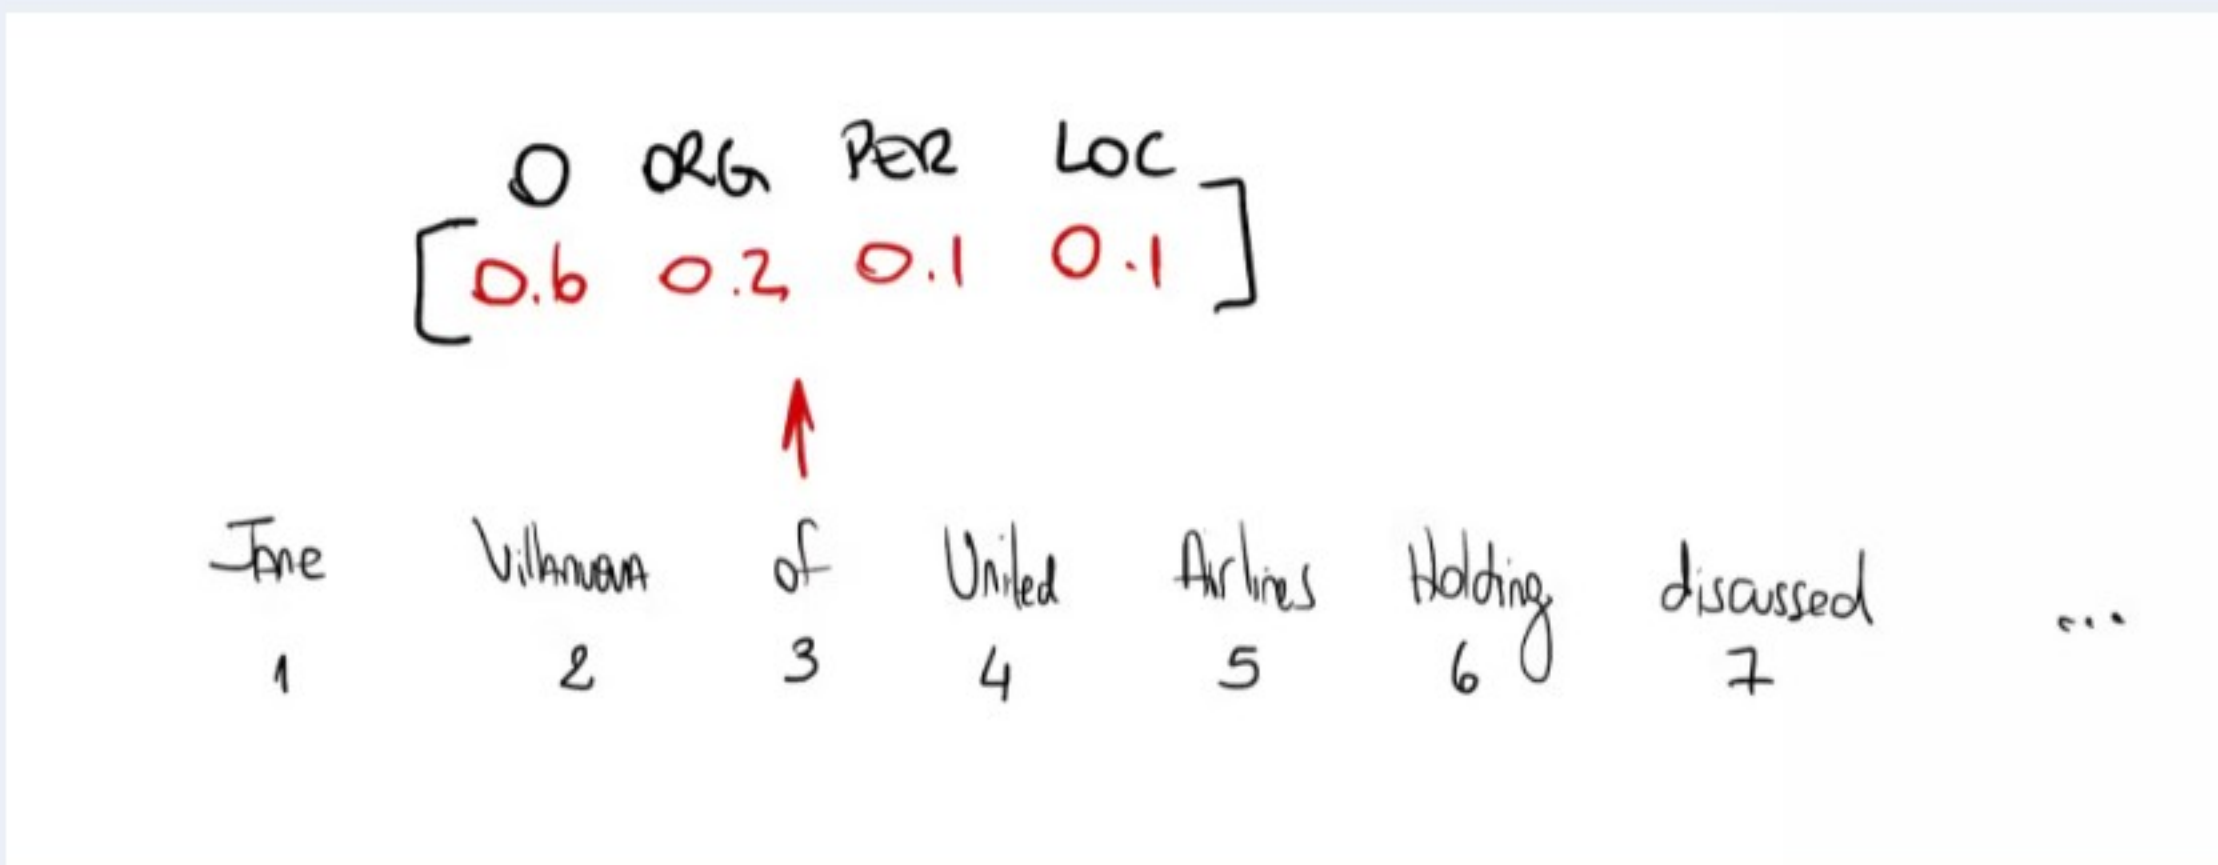 O ORG PER LOC
[0.6 0.2 0.1 0.1]
Jane Villanueva of United Airlines Holding discussed ...
1 2 3 4 5 6 7